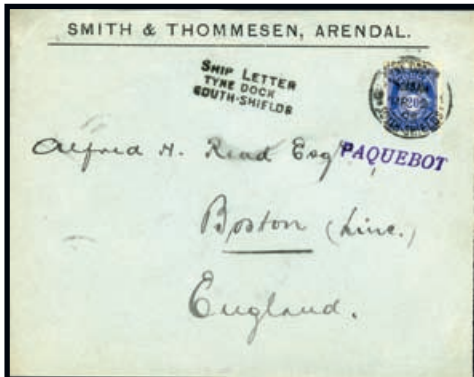 SMITH & THOMMESEN, ARENDAL.
SHIP LETTER
TYNE DOCK
SOUTH-SHIELDS
Alfred H. Read Esq
PAQUEBOT
Boston (Linc.)
England.